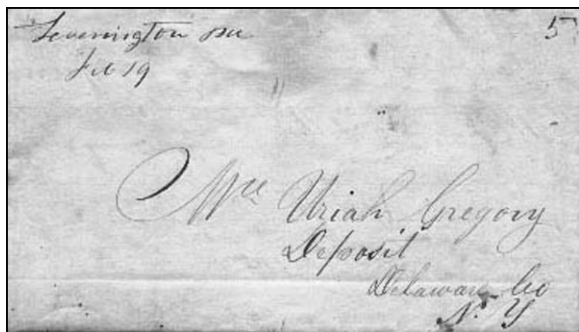 Levenington Pa 5
Feb 19
Mr Uriah Gregory
Deposit
Delaware Co
N. Y